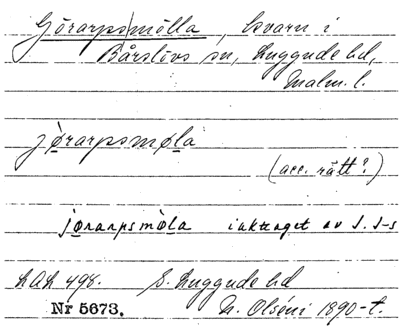 Görarpsmölla, kvarn i
Bårslövs sn, Luggude hd,
Malm. l.
jø̀rarpsmøla
(acc. rätt?)
jørarpsmø̀la iakttaget av I. I-s
LAL 498. S. Luggude hd
Nr 5673. N. Olséni 1890-t.